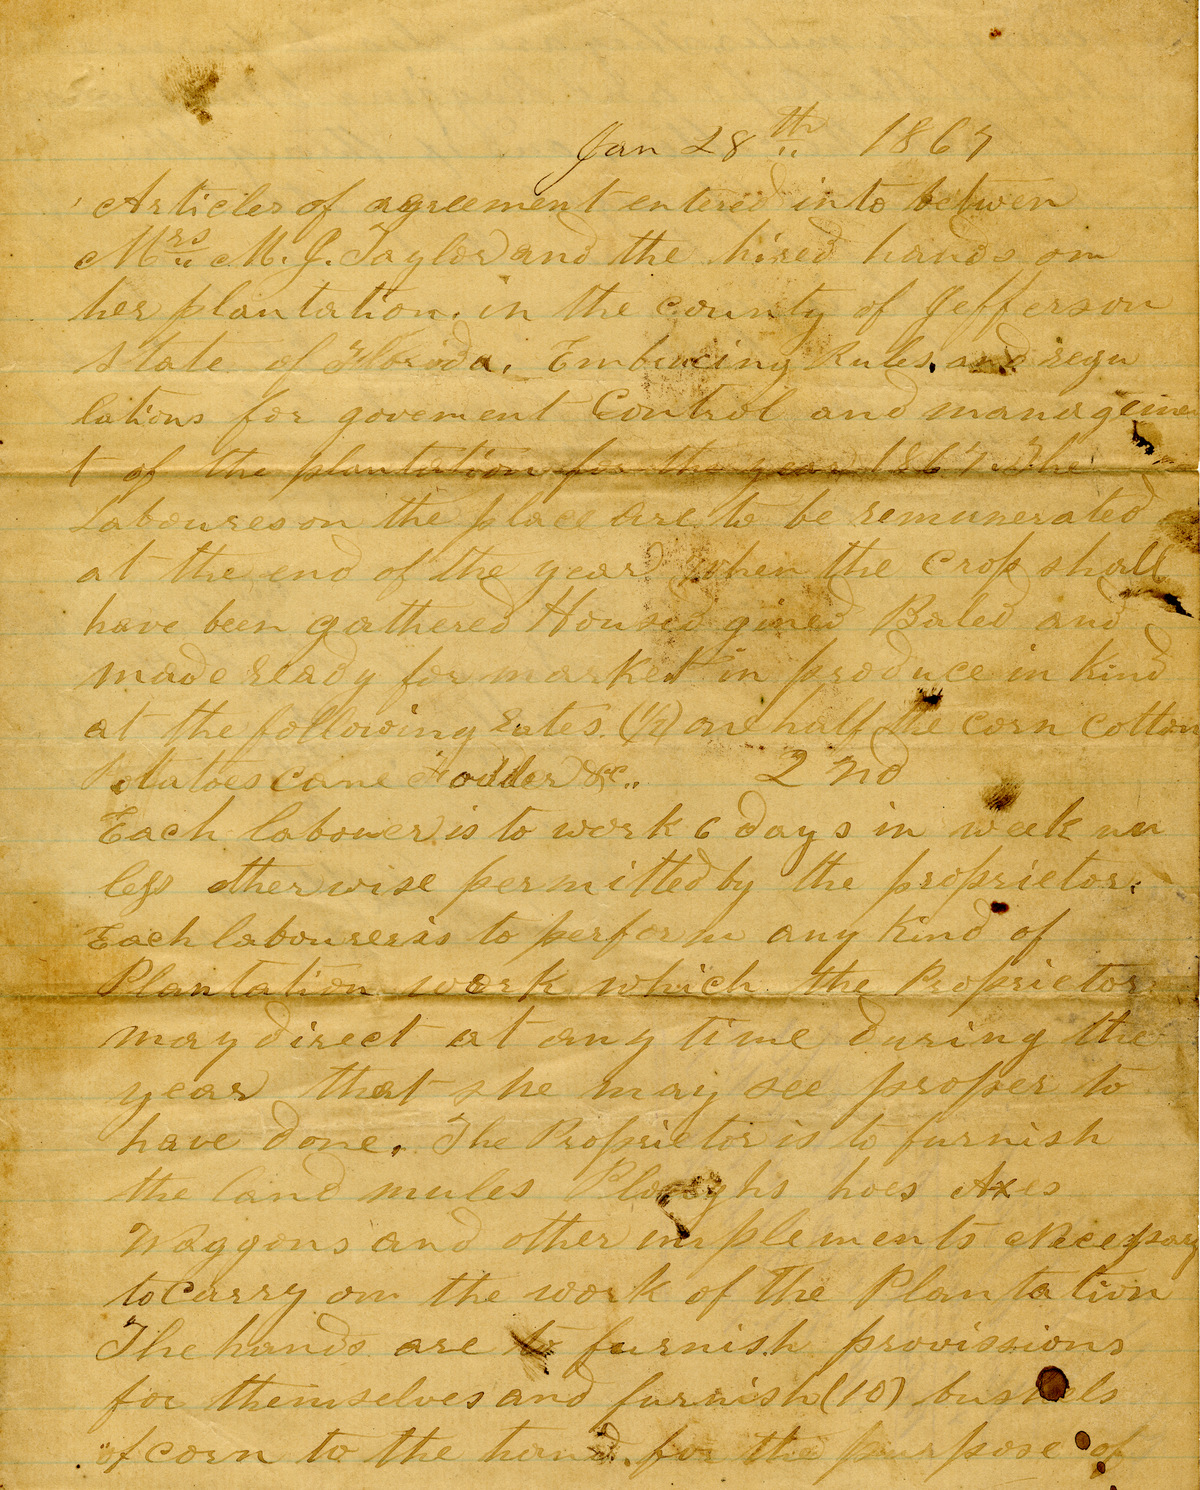 Jan 28th 1867
Articles of agreement entered into betwen
Mrs M. J. Taylor and the hired hands on
her plantation. in the county of Jefferson
State of Florida. Embracing Rules. and regu
lations for goverment Control and managemen
t of the plantation for the year 1867. The
Laboures on the place are to be remunerated
at the end of the year when the crop shall
have been gathered Housed gined Baled and
made ready for market in produce in kind
at the following rates. (1/2) one half the corn cotton
Potatoes cane Fodder &c.. 2nd
Each labouer is to work 6 days in week un
less otherwise permitted by the proprietor.
Each labourer is to perform any kind of
Plantation work which the Proprietor
may direct at any time during the
year that she may see proper to
have done. The Proprietor is to furnish
the land mules Ploughs hoes Axes
Waggons and other implements Necessary
to carry on the work of the Plantation
The hands are to furnish provissions
for themselves and furnish (10) bushels
of corn to the hand. for the purpose of